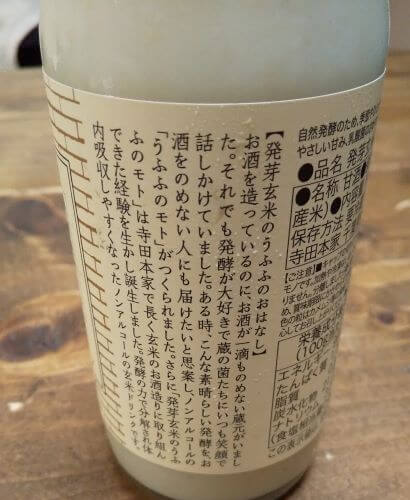 【発芽玄米のうふふのおはなし】
お酒を造っているのに、お酒が一滴ものめない蔵元がいまし
た。それでも発酵が大好きで蔵の菌たちにいつも笑顔で
話しかけていました。ある時、こんな素晴らしい発酵をお
酒をのめない人にも届けたいと思案し、ノンアルコールの
「うふふのモト」がつくられました。さらに「発芽玄米のうふ
ふのモト」は寺田本家で長く玄米のお酒造りに取り組ん
できた経験を生かし誕生しました。発酵の力で分解され体
内吸収しやすくなったノンアルコールの玄米ドリンクです。
自然発酵のため、季節や
やさしい甘み、乳酸菌の
●品名 発芽玄
●名称 甘酒
産米)●内容
保存方法
寺田本家
【ご注意】
モノです。加熱や
りません。
め、賞味期限
色の粒は
栄養成分
(100g
エネル
たんぱく質
脂質
炭水化物
ナトリウム
(食塩相
この表示値